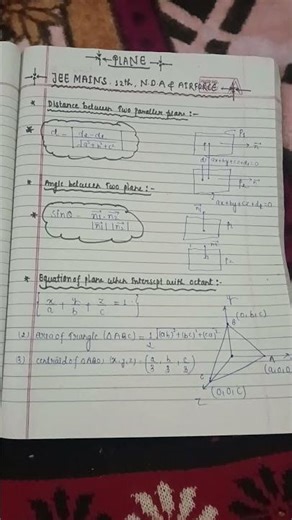 PLANE
JEE MAINS, 12th, N.D.A & AIRFORCE
* Distance between two parallel plane :-
* d = |d2-d1 / √a²+b²+c²|
P1
n
d1
ax+by+cz+d1=0
P2
ax+by+cz+d2=0
* Angle between two plane :-
* sinθ = n1.n2 / |n1||n2|
n1
P1
n
* Equation of plane when Intercept with octant :-
{ x/a + y/b + z/c = 1 }
(2) area of triangle (ΔABC) = 1/2 √(ab)²+(bc)²+(ca)²
(3) centroid of ΔABC (x,y,z) = (a/3, b/3, c/3)
Y
B (0,b,0)
A
C
(0,0,c)
Z